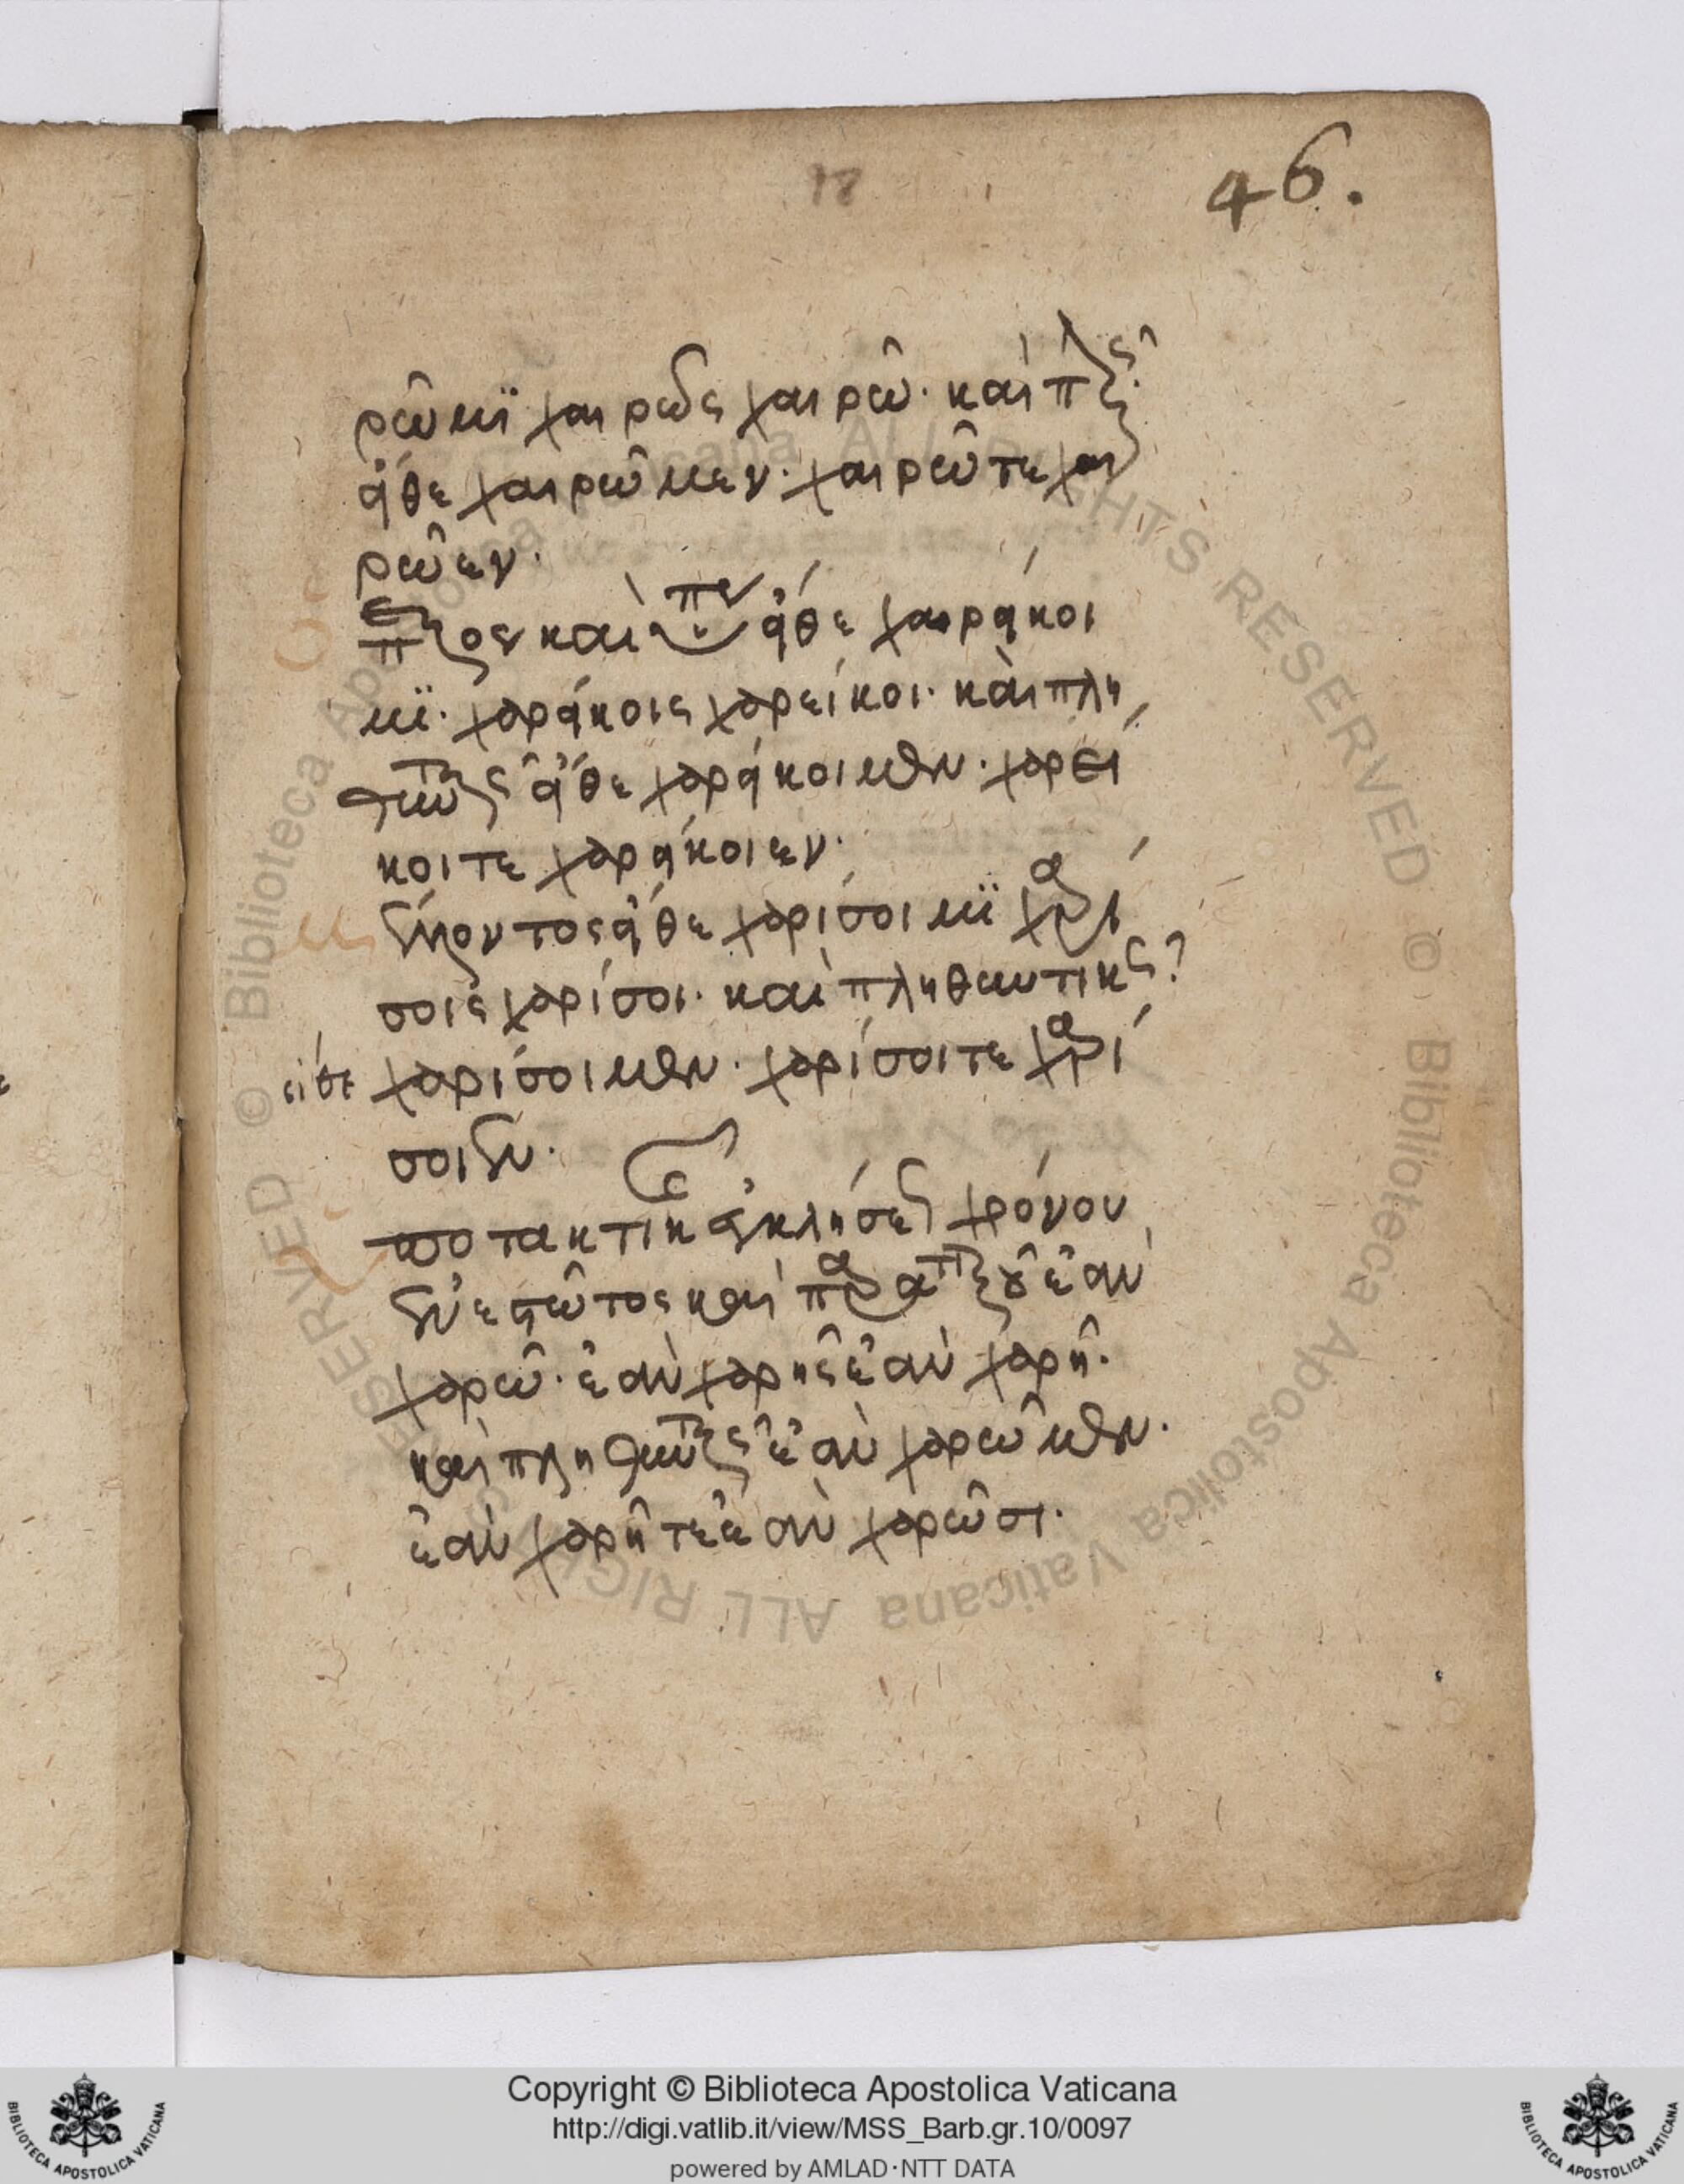 46.
ρῶμϊ χαιρῶς χαιρῶ· καὶ π
εἴθε χαιρῶμεν· χαιρῶτε χαι
ρῶεν·
καὶ εἴθε χαρείκοι
μϊ· χαρείκοις χαρείκοι· καὶ πλη
εἴθε χαρείκοιμεν· χαρεί
κοιτε χαρείκοιεν·
μέλλοντος εἴθε χαρίσοι μϊ χαρί
σοις χαρίσοι· καὶ πληθυντικῶς
εἴθε χαρίσοιμεν· χαρίσοιτε χαρί
σοιεν·
ποτακτικ ἐγκλήσεως χρόνου
ἐνεστῶτος καὶ παρατ ἐὰν
χαρῶ· ἐὰν χαρῆς ἐὰν χαρῆ·
καὶ πλη ἐὰν χαρῶμεν·
ἐὰν χαρῆτε ἐὰν χαρῶσι·
Copyright © Biblioteca Apostolica Vaticana
http://digi.vatlib.it/view/MSS_Barb.gr.10/0097
powered by AMLAD·NTT DATA